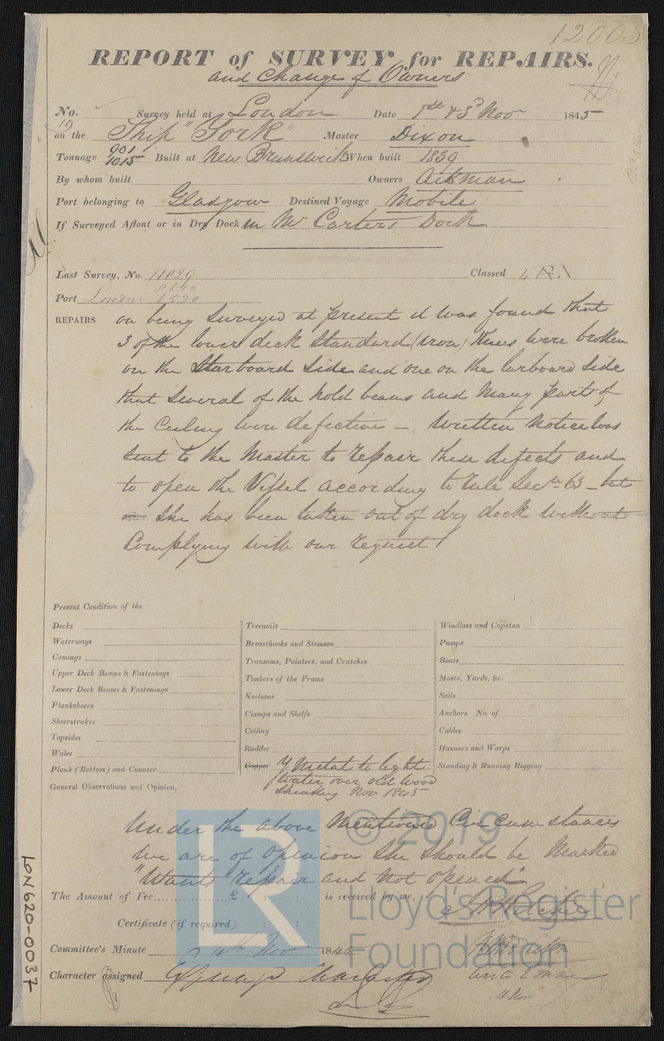 12003
REPORT of SURVEY for REPAIRS.
and Change of Owners
No. Survey held at London Date 1st & 3d Nov 1845
on the Ship "York" Master Dixon
Tonnage 901 1015 Built at New Brunswick When built 1839
By whom built Owners Aitkman
Port belonging to Glasgow Destined Voyage Mobile
If Surveyed Afloat or in Dry Dock in Mr Carters Dock
Last Survey, No. 11029 Classed
Port London
REPAIRS on being Surveyed at present it was found that
3 of the lower deck Standard (iron) Knees were broken
on the Starboard Side and one on the larboard Side
that Several of the hold beams and Many parts of
the Ceiling were defective - Written Notice was
Sent to the Master to repair these defects and
to open the Vessel according to rule Sectn 63 - but
She has been taken out of dry dock without
Complying with our request
Present Condition of the
Decks
Waterways
Comings
Upper Deck Beams & Fastenings
Lower Deck Beams & Fastenings
Planksheers
Sheerstrakes
Topsides
Wales
Plank (Bottom) and Counter
Treenails
Breasthooks and Stemson
Transoms, Pointers, and Crutches
Timbers of the Frame
Keelsons
Clamps and Shelfs
Ceiling
Rudder
Copper Y Metal to light
Water over old Wood
Sheathing Nov 1845
Windlass and Capstan
Pumps
Boats
Masts, Yards, &c.
Sails
Anchors No. of
Cables
Hawsers and Warps
Standing & Running Rigging
General Observations and Opinion,
Under the above Mentioned Circumstances
We are of Opinion She Should be Marked
"Wants repair and not Opened"
The Amount of Fee £ is received by me,
Certificate (if required)
Committee's Minute Nov 1845
Character assigned
© 2019
Lloyd's Register
Foundation
LR
LON620-0037